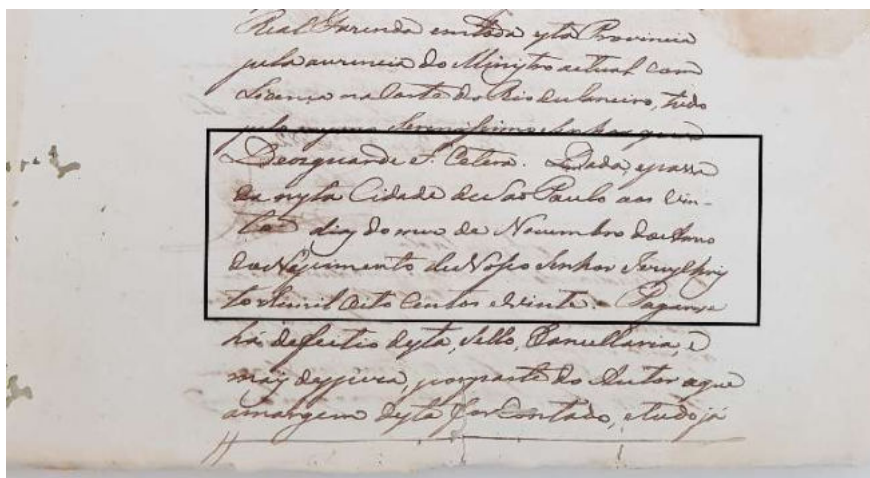 Real Fazenda emtoda esta Provincia
pela auzencia do Ministro actual com
Licença na Corte do Rio de Janeiro, tudo
pelo mesmo Serenissimo Senhor que
Deosguarde et Cetera. Dada, epassa
da nesta Cidade de São Paulo aos vin-
te dias do mez de Novembro do Anno
do Nascimento de Nosso Senhor Jesus Chris
to de mil oito centos e vinte. Pagarse
há defeitio desta, Sello, Chancellaria, e
mais despeza, por parte do Autor aque
amargem desta for Contado, etudo já